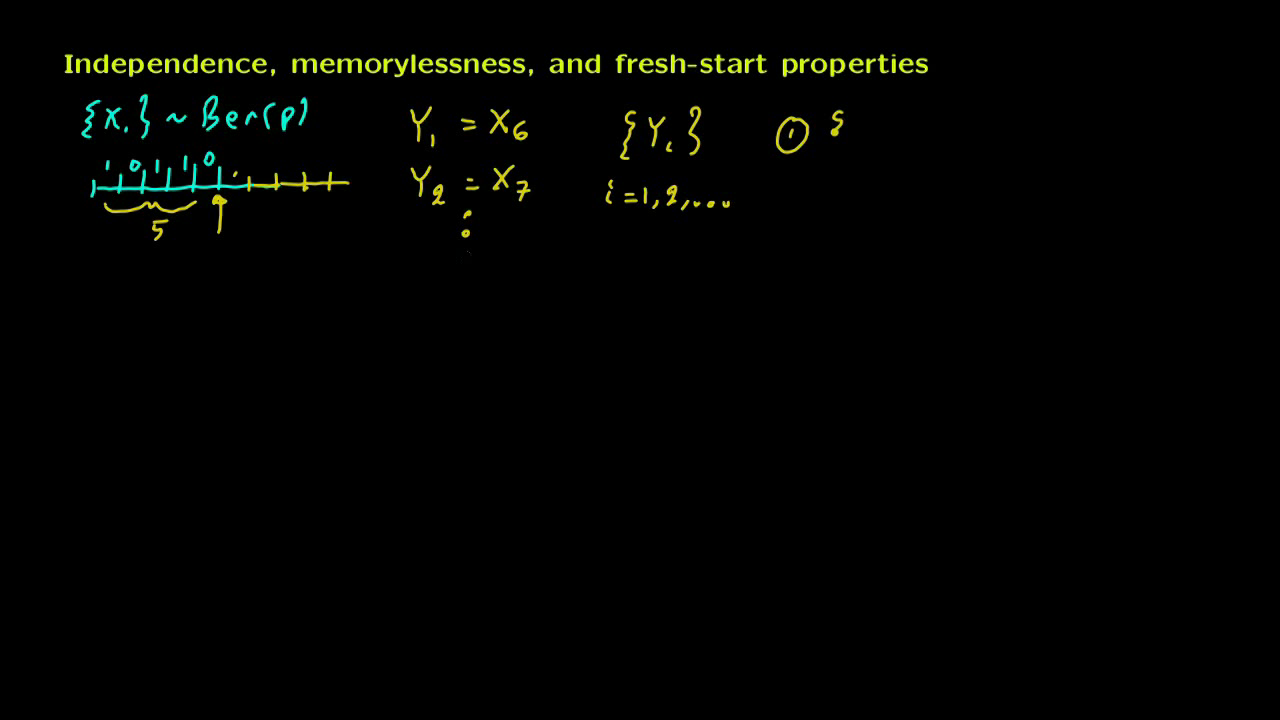 Independence, memorylessness, and fresh-start properties
{X.} ~ Ber(p)
1 0 1 1 0
5
Y₁ = X₆
Y₂ = X₇
⋮
{Yᵢ}
i = 1, 2, ...
①